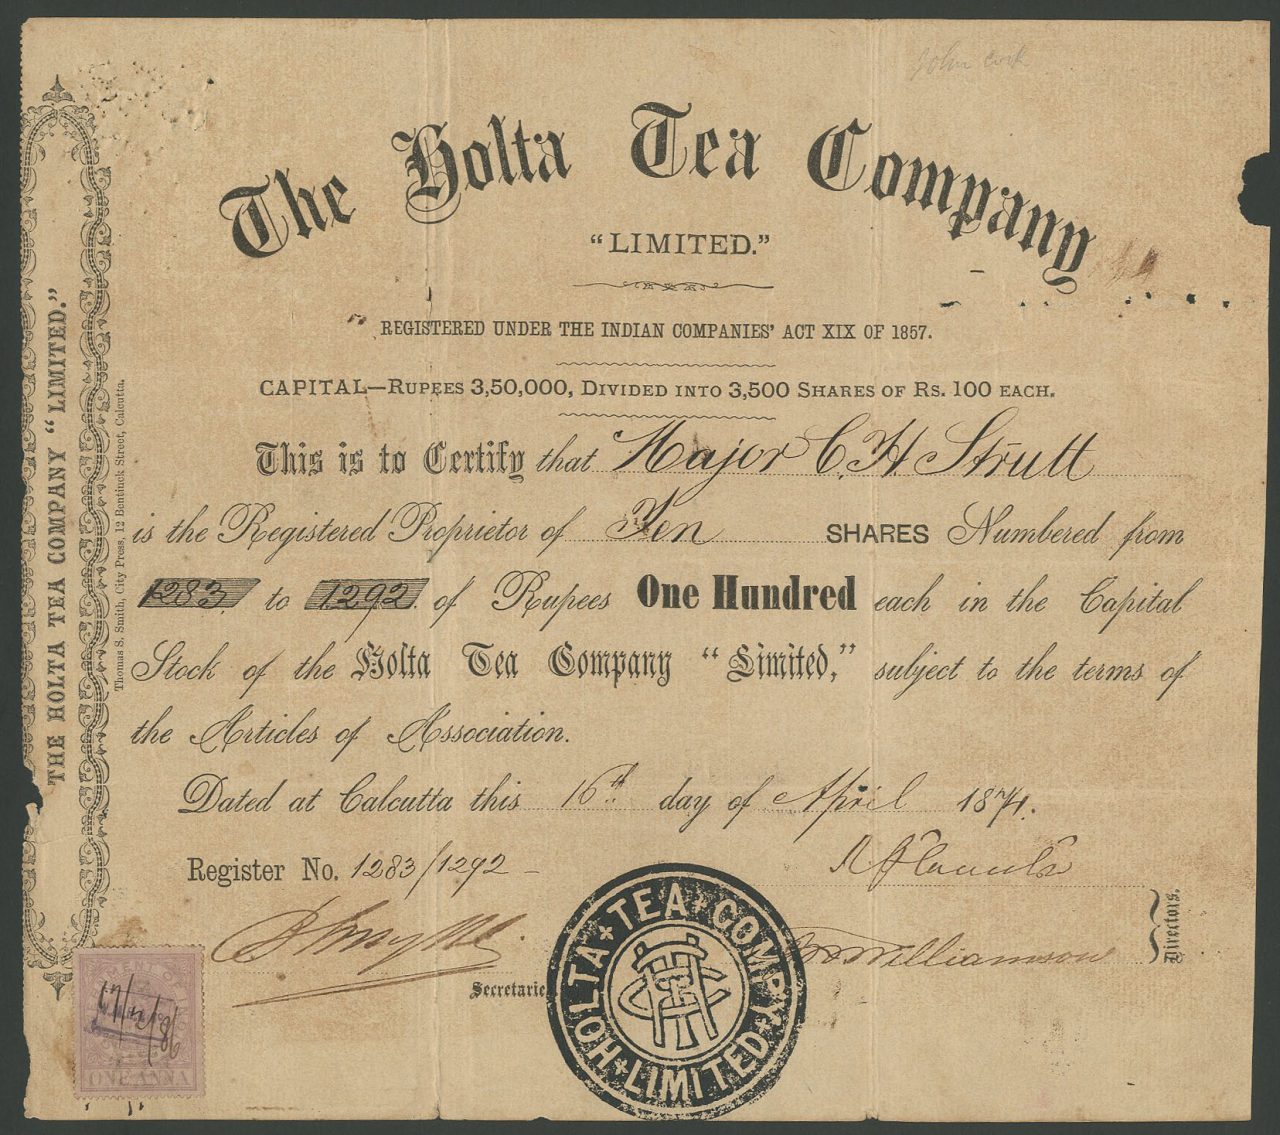 John Cork
The Holta Tea Company
"LIMITED."
REGISTERED UNDER THE INDIAN COMPANIES' ACT XIX OF 1857.
CAPITAL—RUPEES 3,50,000, DIVIDED INTO 3,500 SHARES OF RS. 100 EACH.
This is to Certify that Major C. H Strutt
is the Registered Proprietor of Ten SHARES Numbered from
1283 to 1292 of Rupees One Hundred each in the Capital
Stock of the Holta Tea Company "Limited," subject to the terms of
the Articles of Association.
Dated at Calcutta this 16th day of April 1874.
Register No. 1283/1292
Williamson
Directors.
Secretarie
HOLTA TEA COMPY LIMITED
ONE ANNA
THE HOLTA TEA COMPANY "LIMITED."
Thomas S. Smith, City Press, 12 Bentinck Street, Calcutta.